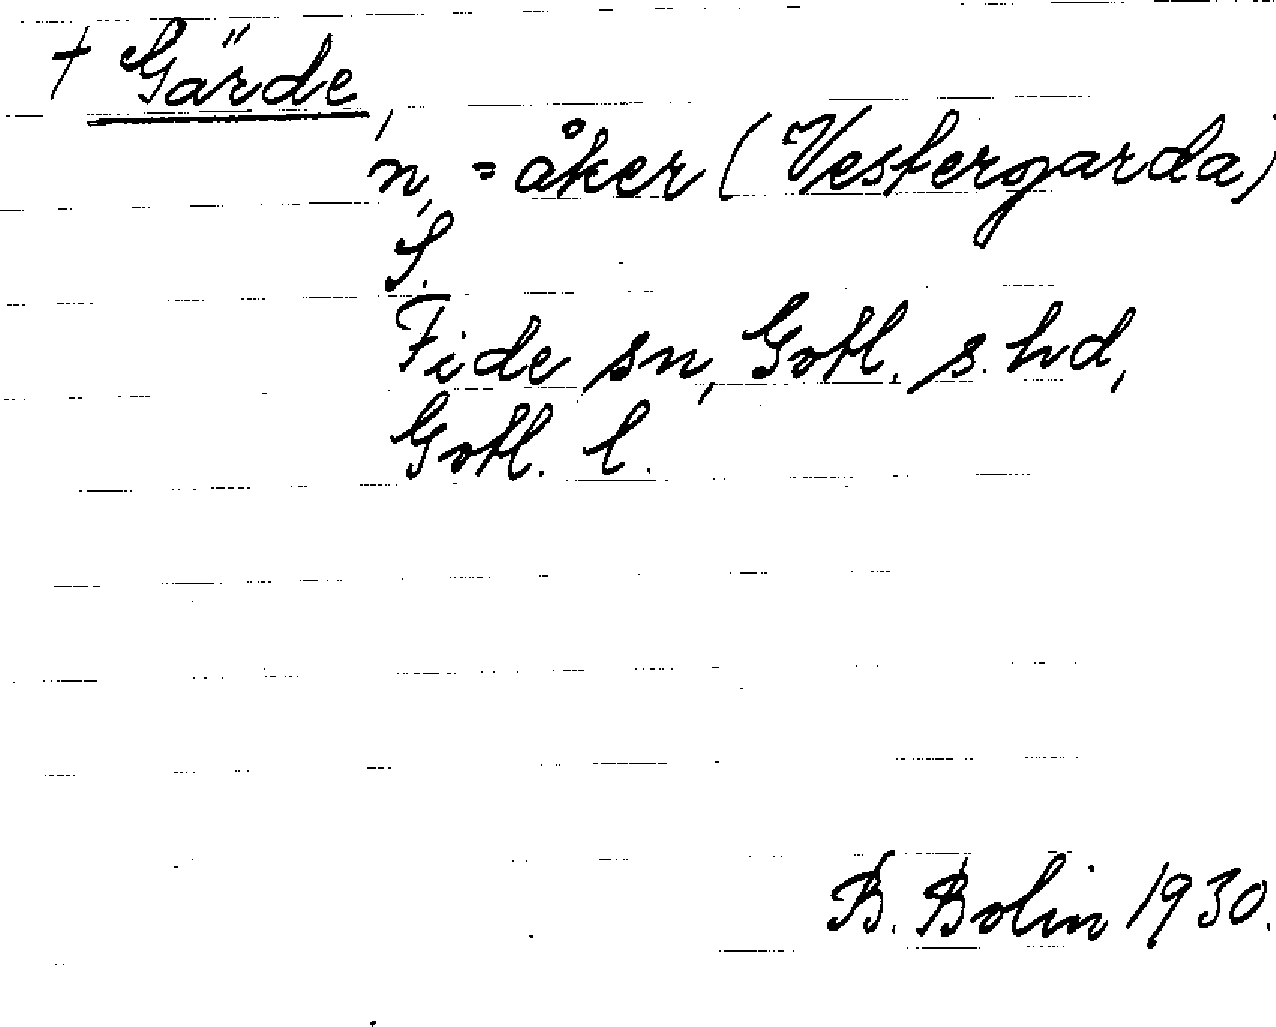 + Gärde,
n, = åker (Vestergarda)
S.
Fide sn, Gotl. s. hd,
Gotl. l.
B. Bolin 1930.